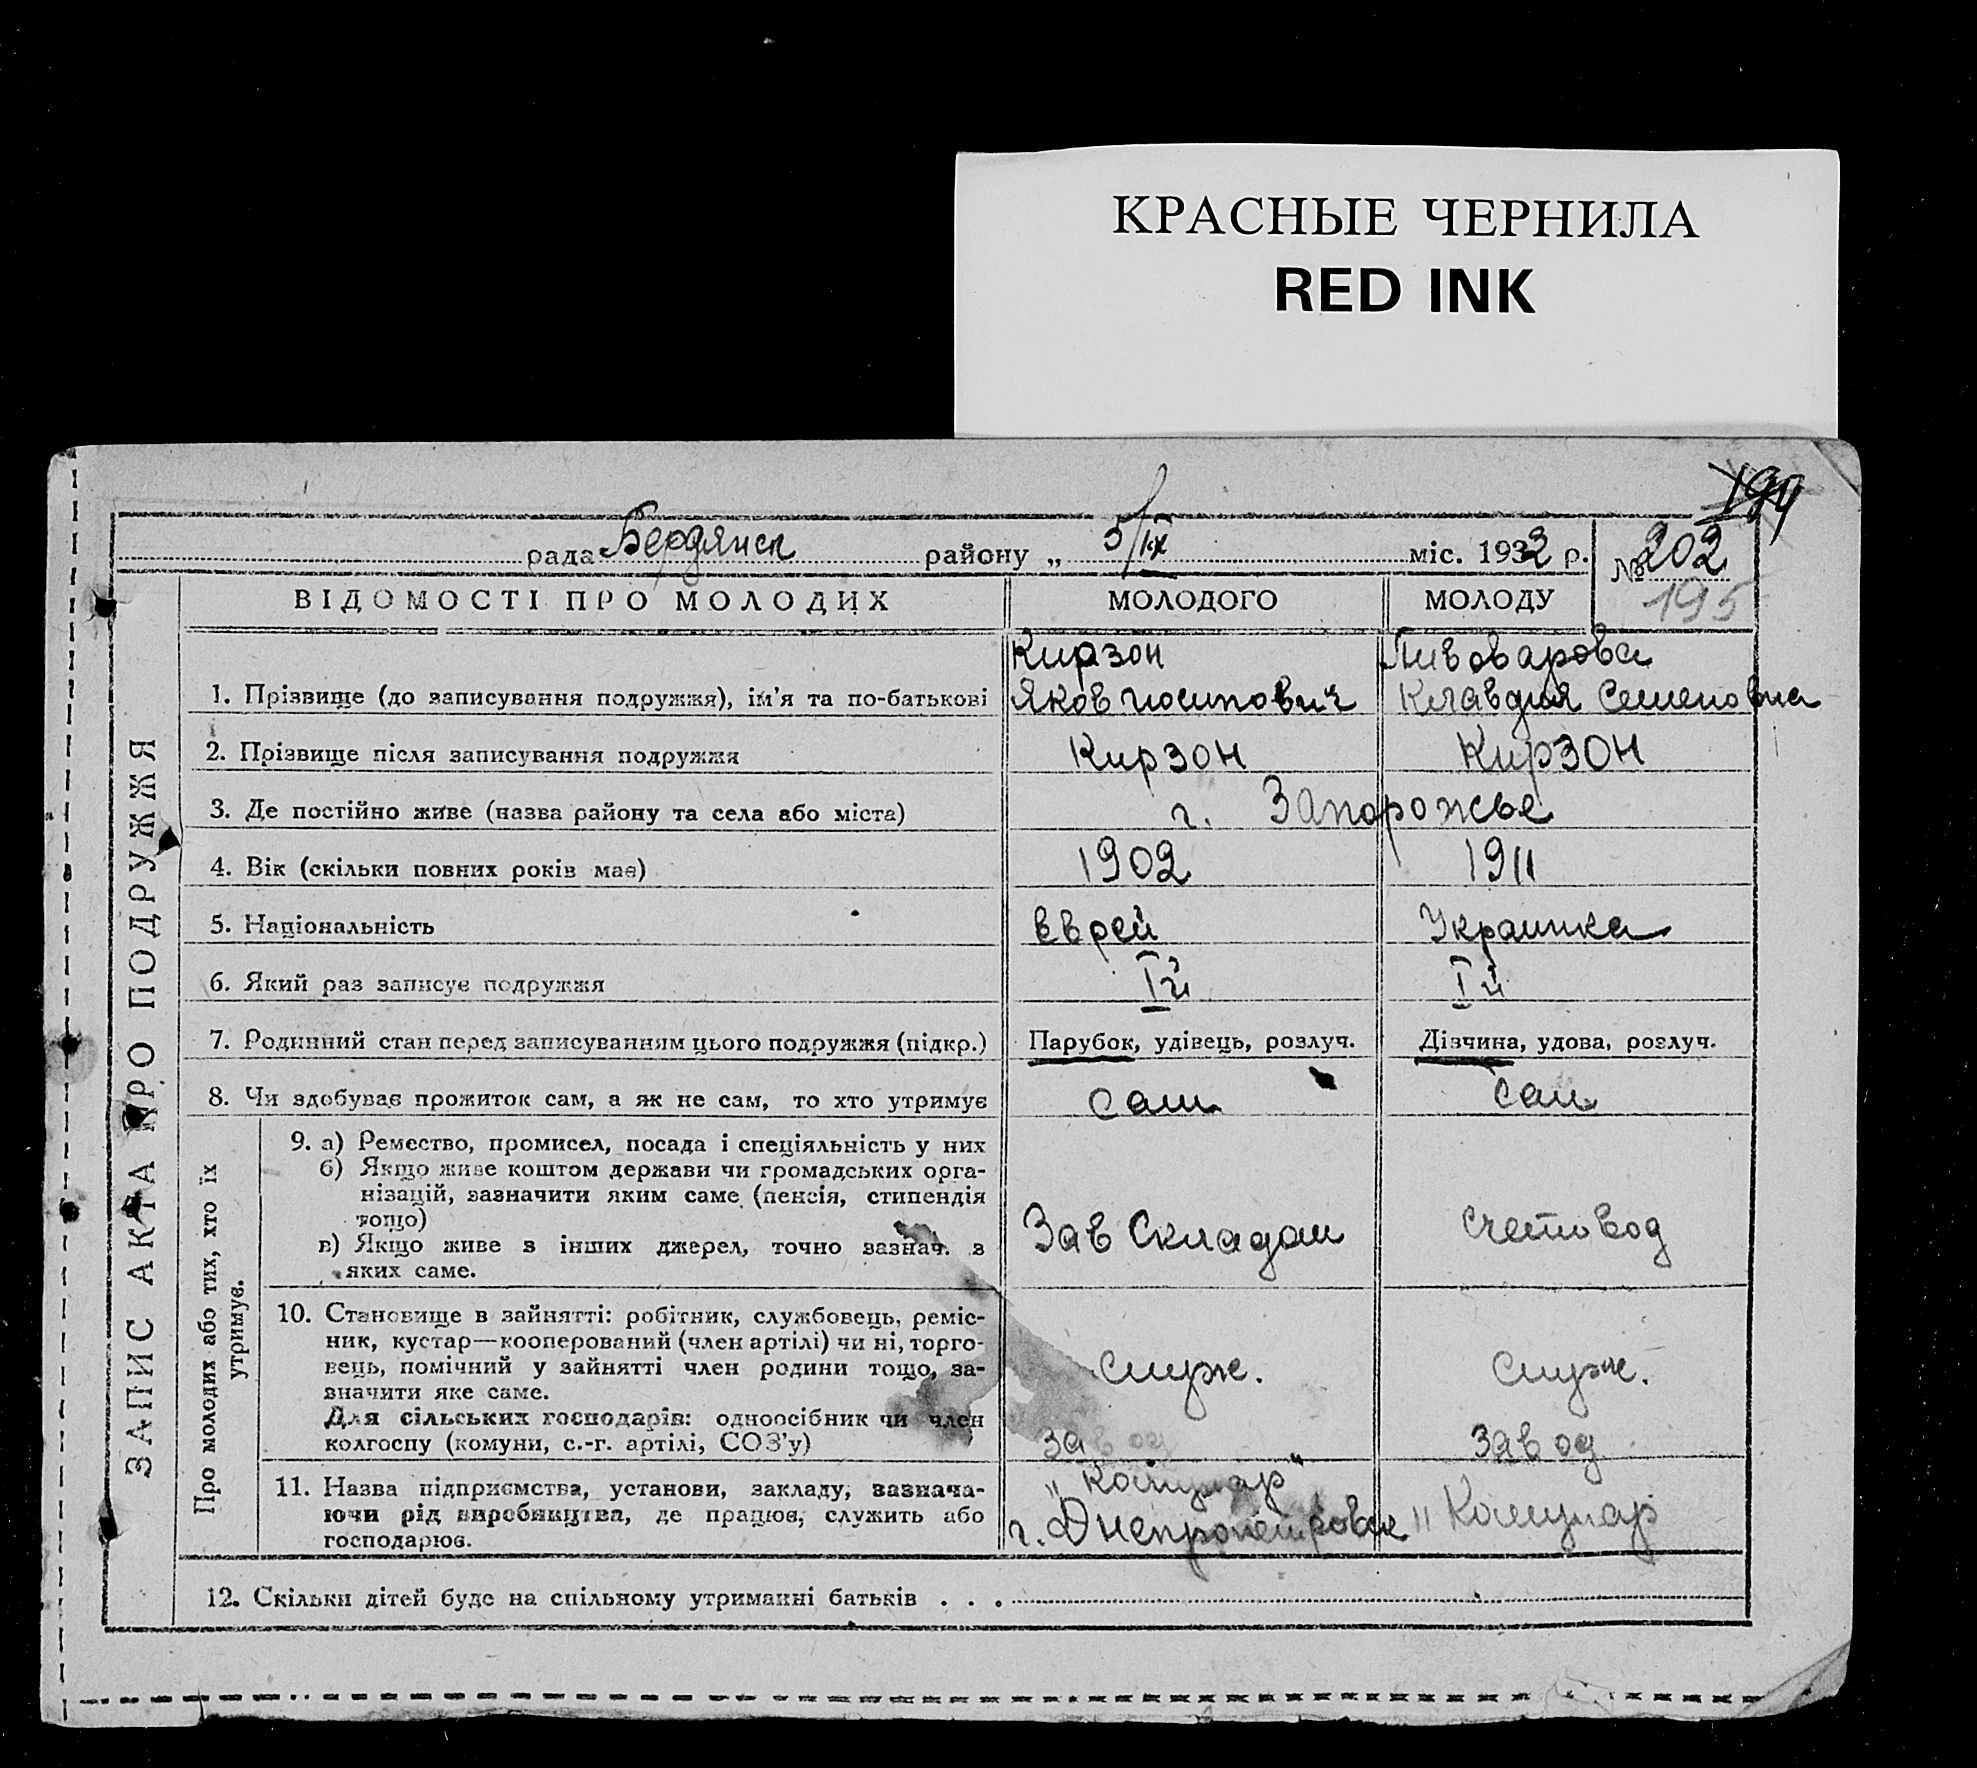 КРАСНЫЕ ЧЕРНИЛА
RED INK
194
рада Бердянск району „ 5/IX міс. 1933 р.
№ 202
195
ВІДОМОСТІ ПРО МОЛОДИХ МОЛОДОГО МОЛОДУ
ЗАПИС АКТА ПРО ПОДРУЖЖЯ
Кирзон Пивоварова
1. Прізвище (до записування подружжя), ім'я та по-батькові Яков Иосипович Клавдия Семеновна
2. Прізвище після записування подружжя Кирзон Кирзон
3. Де постійно живе (назва району та села або міста) г. Запорожье
4. Вік (скільки повних років має) 1902 1911
5. Національність Еврей Украинка
6. Який раз записує подружжя Iй Iй
7. Родинний стан перед записуванням цього подружжя (підкр.) Парубок, удівець, розлуч. Дівчина, удова, розлуч.
8. Чи здобуває прожиток сам, а як не сам, то хто утримує сам сам
Про молодих або тих, хто їх
утримує.
9. а) Ремество, промисел, посада і спеціяльність у них
б) Якщо живе коштом держави чи громадських орга-
нізацій, зазначити яким саме (пенсія, стипендія
тощо)
в) Якщо живе з інших джерел, точно зазнач. з
яких саме.
Зав Складом Счетовод
10. Становище в зайнятті: робітник, службовець, реміс-
ник, кустар—кооперований (член артілі) чи ні, торго-
вець, помічний у зайнятті член родини тощо, за-
значити яке саме.
Для сільських господарів: одноосібник чи член
колгоспу (комуни, с.-г. артілі, СОЗ'у)
служ. служ.
завод завод
11. Назва підприємства, установи, закладу, зазнача-
ючи рід виробництва, де працює, служить або
господарює.
г. Днепропетровск
12. Скільки дітей буде на спільному утриманні батьків . . .